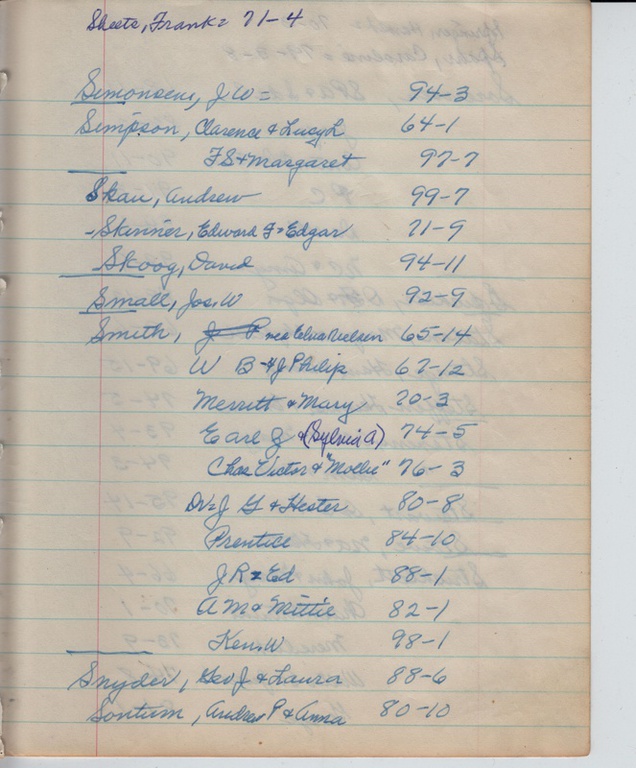 Sheets, Frank = 71-4
Simonsen, J W = 94-3
Simpson, Clarence & Lucy L 64-1
F S & Margaret 97-7
Skau, Andrew 99-7
-Skinner, Edward F & Edgar 71-9
Skoog, David 94-11
Small, Jos. W 92-9
Smith, J P nee Elva Nielsen 65-14
W B & J Philip 67-12
Merritt & Mary 70-3
Earl & (Sylvia A) 74-5
Chas Victor & "Mollie" 76-3
Dr = J G & Hester 80-8
Prentice 84-10
J R & Ed 88-1
A M & Mittie 82-1
Ken. W 98-1
Snyder, Geo J & Laura 88-6
Sontum, Andrew P & Anna 80-10